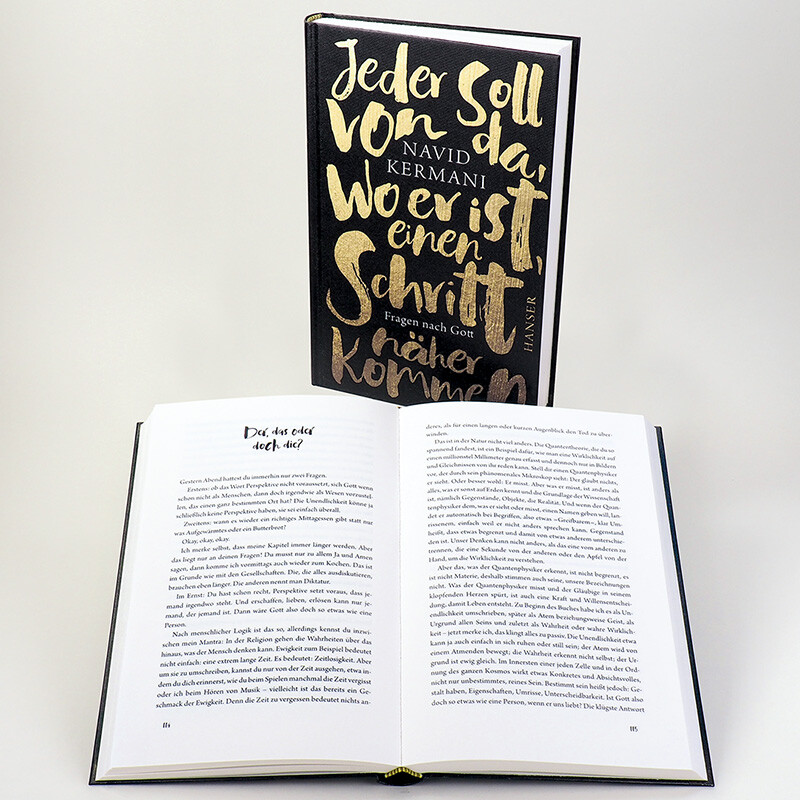 Jeder Soll
von da,
NAVID
KERMANI
Wo er ist,
einen
Schritt
Fragen nach Gott
näher
Kommen
HANSER
Der, das oder
doch die?
Gestern Abend hattest du immerhin nur zwei Fragen.
Erstens: ob das Wort Perspektive nicht voraussetzt, sich Gott wenn
schon nicht als Menschen, dann doch irgendwie als Wesen vorzustel-
len, das einen ganz bestimmten Ort hat? Die Unendlichkeit könne ja
schließlich keine Perspektive haben, sie sei einfach überall.
Zweitens: wann es wieder ein richtiges Mittagessen gibt statt nur
was Aufgewärmtes oder ein Butterbrot?
Okay, okay, okay.
Ich merke selbst, dass meine Kapitel immer länger werden. Aber
das liegt nur an deinen Fragen! Du musst nur zu allem Ja und Amen
sagen, dann komme ich vormittags auch wieder zum Kochen. Das ist
im Grunde wie mit den Gesellschaften. Die, die alles ausdiskutieren,
brauchen eben länger. Die anderen nennt man Diktatur.
Im Ernst: Du hast schon recht, Perspektive setzt voraus, dass je-
mand irgendwo steht. Und erschaffen, lieben, erlösen kann nur je-
mand, der jemand ist. Dann wäre Gott also doch so etwas wie eine
Person.
Nach menschlicher Logik ist das so, allerdings kennst du inzwi-
schen mein Mantra: In der Religion gehen die Wahrheiten über das
hinaus, was der Mensch denken kann. Ewigkeit zum Beispiel bedeutet
nicht einfach: eine extrem lange Zeit. Es bedeutet: Zeitlosigkeit. Aber
um sie zu umschreiben, kannst du nur von der Zeit ausgehen, etwa in-
dem du dich erinnerst, wie du beim Spielen manchmal die Zeit vergisst
oder ich beim Hören von Musik – vielleicht ist das bereits ein Ge-
schmack der Ewigkeit. Denn die Zeit zu vergessen bedeutet nichts an-
114
deres, als für einen langen oder kurzen Augenblick den Tod zu über-
winden.
Das ist in der Natur nicht viel anders. Die Quantentheorie, die du so
spannend fandest, ist ein Beispiel dafür, wie man eine Wirklichkeit auf
einen millionstel Millimeter genau erfasst und dennoch nur in Bildern
und Gleichnissen von ihr reden kann. Stell dir einen Quantenphysiker
vor, der durch sein phänomenales Mikroskop sieht: Der glaubt nicht,
er sieht. Oder besser wohl: Er misst. Aber was er misst, ist anders als
alles, was er sonst auf Erden kennt und die Grundlage der Wissenschaft
ist, nämlich Gegenstände, Objekte, die Realität. Und wenn der Quan-
tenphysiker dem, was er sieht oder misst, einen Namen geben will, lan-
det er automatisch bei Begriffen, also etwas »Greifbarem«, klar Um-
rissenem, einfach weil er nicht anders sprechen kann. Gegenstand
heißt, dass etwas begrenzt und damit von etwas anderem unterschie-
den ist. Unser Denken kann nicht anders, als das eine vom anderen zu
trennen, die eine Sekunde von der anderen oder den Apfel von der
Hand, um die Wirklichkeit zu verstehen.
Aber das, was der Quantenphysiker erkennt, ist nicht begrenzt, es
ist nicht Materie, deshalb stimmen auch seine, unsere Bezeichnungen
nicht. Was der Quantenphysiker misst und der Gläubige in seinem
klopfenden Herzen spürt, ist auch eine Kraft und Willensentschei-
dung, damit Leben entsteht. Zu Beginn des Buches habe ich es als Un-
endlichkeit umschrieben, später als Atem beziehungsweise Geist, als
Urgrund allen Seins und zuletzt als Wahrheit oder wahre Wirklich-
keit – jetzt merke ich, das klingt alles zu passiv. Die Unendlichkeit etwa
kann ja auch einfach in sich ruhen oder still sein; der Atem wird von
einem Atmenden bewegt; die Wahrheit erkennt nicht selbst; der Ur-
grund ist ewig gleich. Im Innersten einer jeden Zelle und in der Ord-
nung des ganzen Kosmos wirkt etwas Konkretes und Absichtsvolles,
nicht nur unbestimmtes, reines Sein. Bestimmt sein heißt jedoch: Ge-
stalt haben, Eigenschaften, Umrisse, Unterscheidbarkeit. Ist Gott also
doch so etwas wie eine Person, wenn er uns liebt? Die klügste Antwort
115